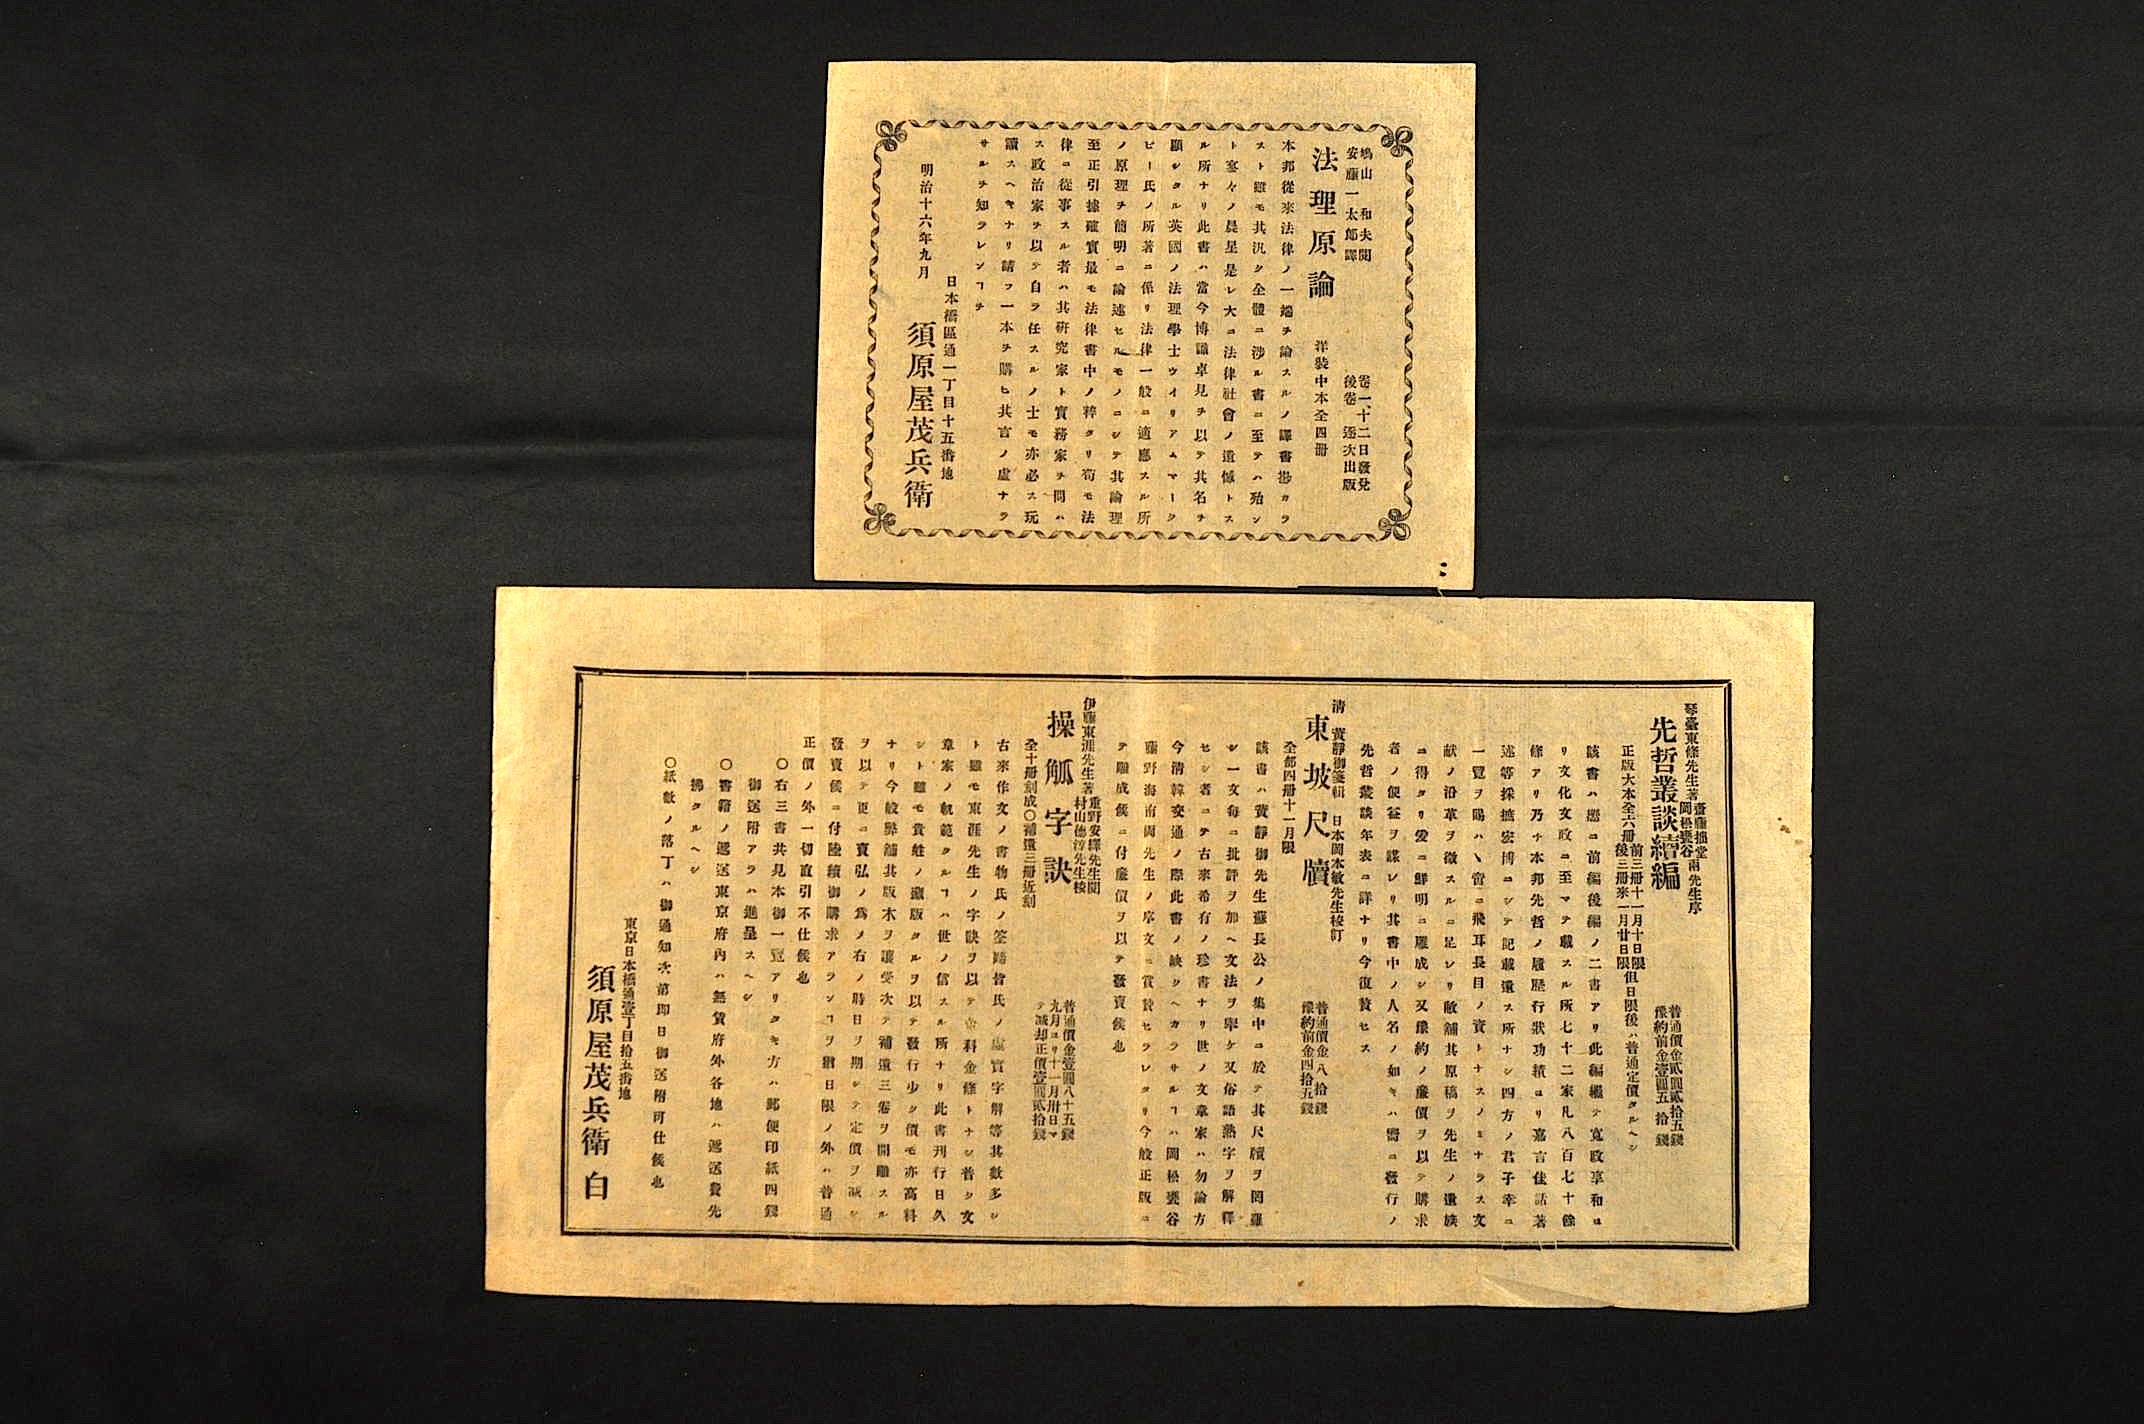 鳩山和夫閲
安藤一太郎譯
卷一十二日發兌
後卷逐次出版
法理原論
洋裝中本全四册
本邦從來法律ノ一端ヲ論スルノ譯書尠カラ
スト雖モ其汎ク全體ニ渉ル書ニ至テハ殆ン
ト寥々ノ晨星是レ大ニ法律社會ノ遺憾トス
ル所ナリ此書ハ當今博識卓見ヲ以テ其名ヲ
顯シタル英國ノ法理學士ウイリアムマーク
ビー氏ノ所著ニ係リ法律一般ニ適應スル所
ノ原理ヲ簡明ニ論述セルモノニシテ其論理
至正引據確實最モ法律書中ノ粹タリ苟モ法
律ニ從事スル者ハ其研究家ト實務家ヲ問ハ
ス政治家ヲ以テ自ラ任スルノ士モ亦必ス玩
讀スヘキナリ請フ一本ヲ購ヒ其言ノ虛ナラ
サルヲ知ラレンヿヲ
日本橋區通一丁目十五番地
明治十六年九月
須原屋茂兵衛
琴臺東條先生著
齋藤拙堂
岡松甕谷
兩先生序
先哲叢談續編
普通價金貳圓貳拾五錢
豫約前金壹圓五拾錢
正版大本全六册
前三册十一月十日限
後三册來一月廿日限
但日限後ハ普通定價タルヘシ
該書ハ曩ニ前編後編ノ二書アリ此編繼テ寬政享和ヨ
リ文化文政ニ至マテ載スル所七十二家凡八百七十餘
條アリ乃チ本邦先哲ノ履歷行狀功績ヨリ嘉言佳話著
述等採摭宏博ニシテ記載遺ス所ナシ四方ノ君子幸ニ
一覽ヲ賜ハヽ啻ニ飛耳長目ノ資トナスノミナラス文
献ノ沿革ヲ徵スルニ足レリ敝舖其原稿ヲ先生ノ遺族
ニ得タリ爰ニ鮮明ニ雕成シ又豫約ノ廉價ヲ以テ購求
者ノ便益ヲ謀レリ其書中ノ人名ノ如キハ嚮ニ發行ノ
先哲叢談年表ニ詳ナリ今復贅セス
清 黃靜御箋輯 日本岡本敏先生校訂
東坡尺牘
普通價金八拾錢
豫約前金四拾五錢
全部四册十一月限
該書ハ黃靜御先生蘇長公ノ集中ニ於テ其尺牘ヲ罔羅
シ一文每ニ批評ヲ加ヘ文法ヲ擧ケ又俗語熟字ヲ解釋
セシ者ニテ古來希有ノ珍書ナリ世ノ文章家ハ勿論方
今清韓交通ノ際此書ノ缺クヘカラサルヿハ岡松甕谷
藤野海南兩先生ノ序文ニ賞贊セラレタリ今般正版ニ
テ雕成候ニ付廉價ヲ以テ發賣候也
伊藤東涯先生著
重野安繹先生閲
村山德淳先生校
操觚字訣
普通價金壹圓八十五錢
九月ヨリ十一月卅日マ
テ減却正價壹圓貳拾錢
全十册刻成〇補遺三册近刻
古來作文ノ書物氏ノ筌蹄皆氏ノ虛實字解等其數多シ
ト雖モ東涯先生ノ字訣ヲ以テ金科金條トナシ普ク文
章家ノ軌範タルヿハ世ノ信スル所ナリ此書刊行日久
シト雖モ貴姓ノ藏版タルヲ以テ發行少ク價モ亦高料
ナリ今般弊舖其版木ヲ讓受次テ補遺三卷ヲ開雕スル
ヲ以テ更ニ賣弘ノ爲メ右ノ時日ヲ期シテ定價ヲ減シ
發賣候ニ付陸續御購求アランヿヲ猶日限ノ外ハ普通
正價ノ外一切直引不仕候也
〇右三書共見本御一覽アリタキ方ハ郵便印紙四錢
御送附アラハ進呈スヘシ
〇書籍ノ遞送東京府內ハ無賃府外各地ハ遞送費先
拂タルヘシ
〇紙數ノ落丁ハ御通知次第即日御送附可仕候也
東京日本橋通壹丁目拾五番地
須原屋茂兵衛 白